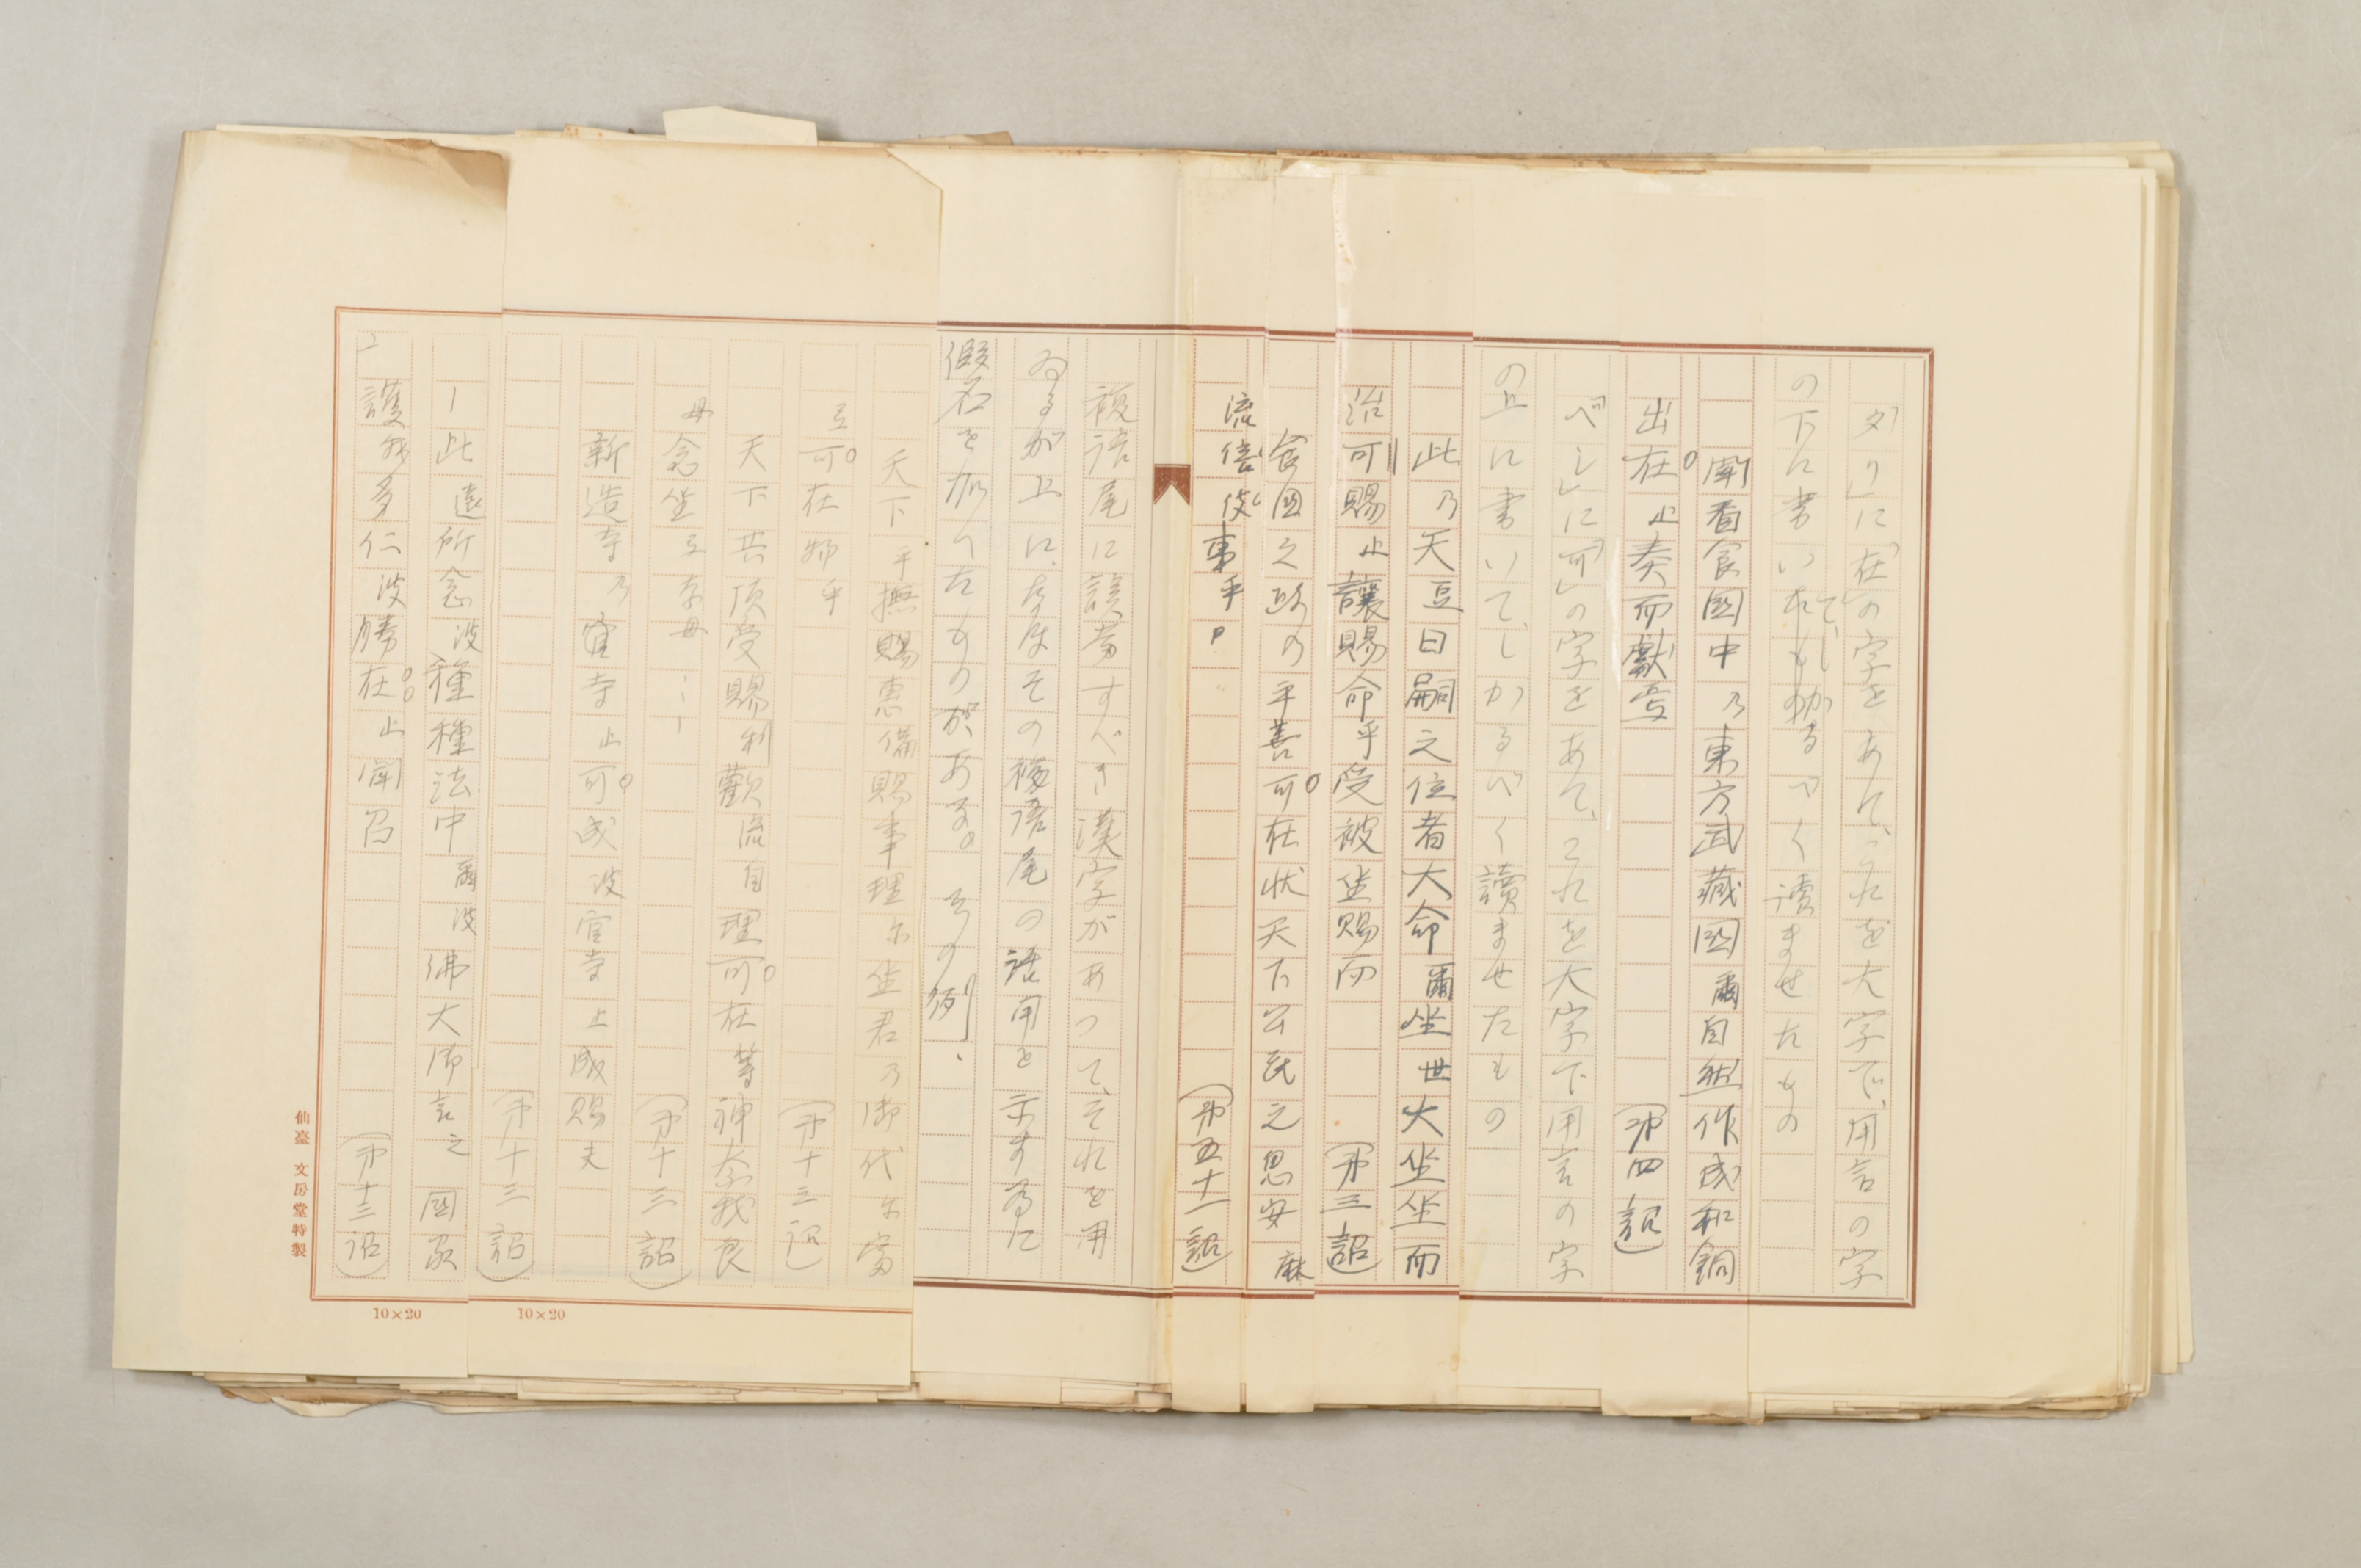 タリ」に「在」の字をあて、これを大字で、用言の字
の下に書いて、しかるべく読ませたもの
聞看食國中乃東方武藏國爾自然作成和銅
出在止奏而獻焉
(第四詔)
「ベシ」に「可」の字をあて、これを大字で用言の字
の上に書いて、しかるべく讀ませたもの
此乃天豆日嗣之位者大命爾坐世大坐坐而
治可賜止讓賜命乎受被坐賜而
(第三詔)
食國之政の乎善可在状天下公民之思安麻
流倍伎事乎。
(第五十一詔)
複語尾に該当すべき漢字があつて、それを用
ゐるが上に、なほその複語尾の活用を示す為に
假名を加へたものがある。その例、
天下乎撫賜惠備賜事理尓坐君乃御代尓當
弖可在物乎
(第十三詔)
天下共頂受賜利歡流自理可在等神奈我良
母念坐弖奈母……
(第十三詔)
新造寺乃官寺止可成波官寺止成賜夫
(第十三詔)
―此遠所念波種種法中爾波佛大御言之國家
護我多仁波勝在止聞召
(第十三詔)
仙臺 文房堂特製
10×20
10×20